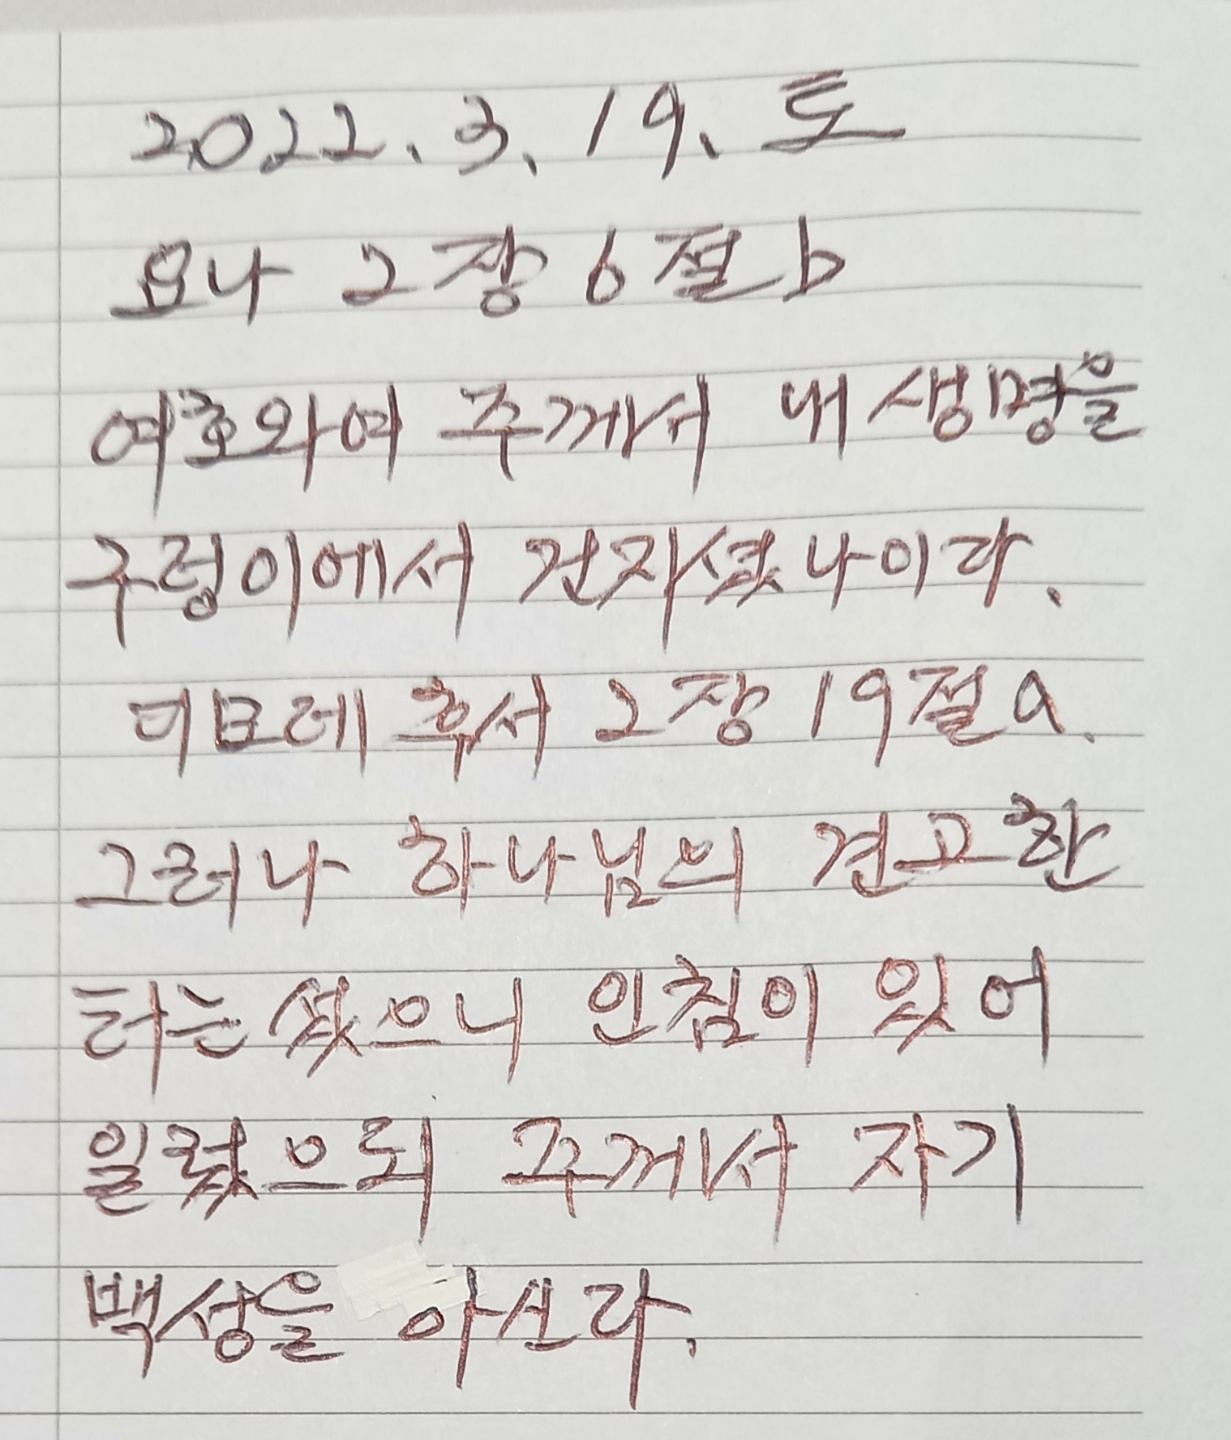 2022. 3. 19. 토
요나 2장 6절b
여호와여 주께서 내 생명을
구렁이에서 건지셨나이다.
디모데 후서 2장 19절a.
그러나 하나님의 견고한
터는 섰으니 인침이 있어
일렀으되 주께서 자기
백성을 아신다.